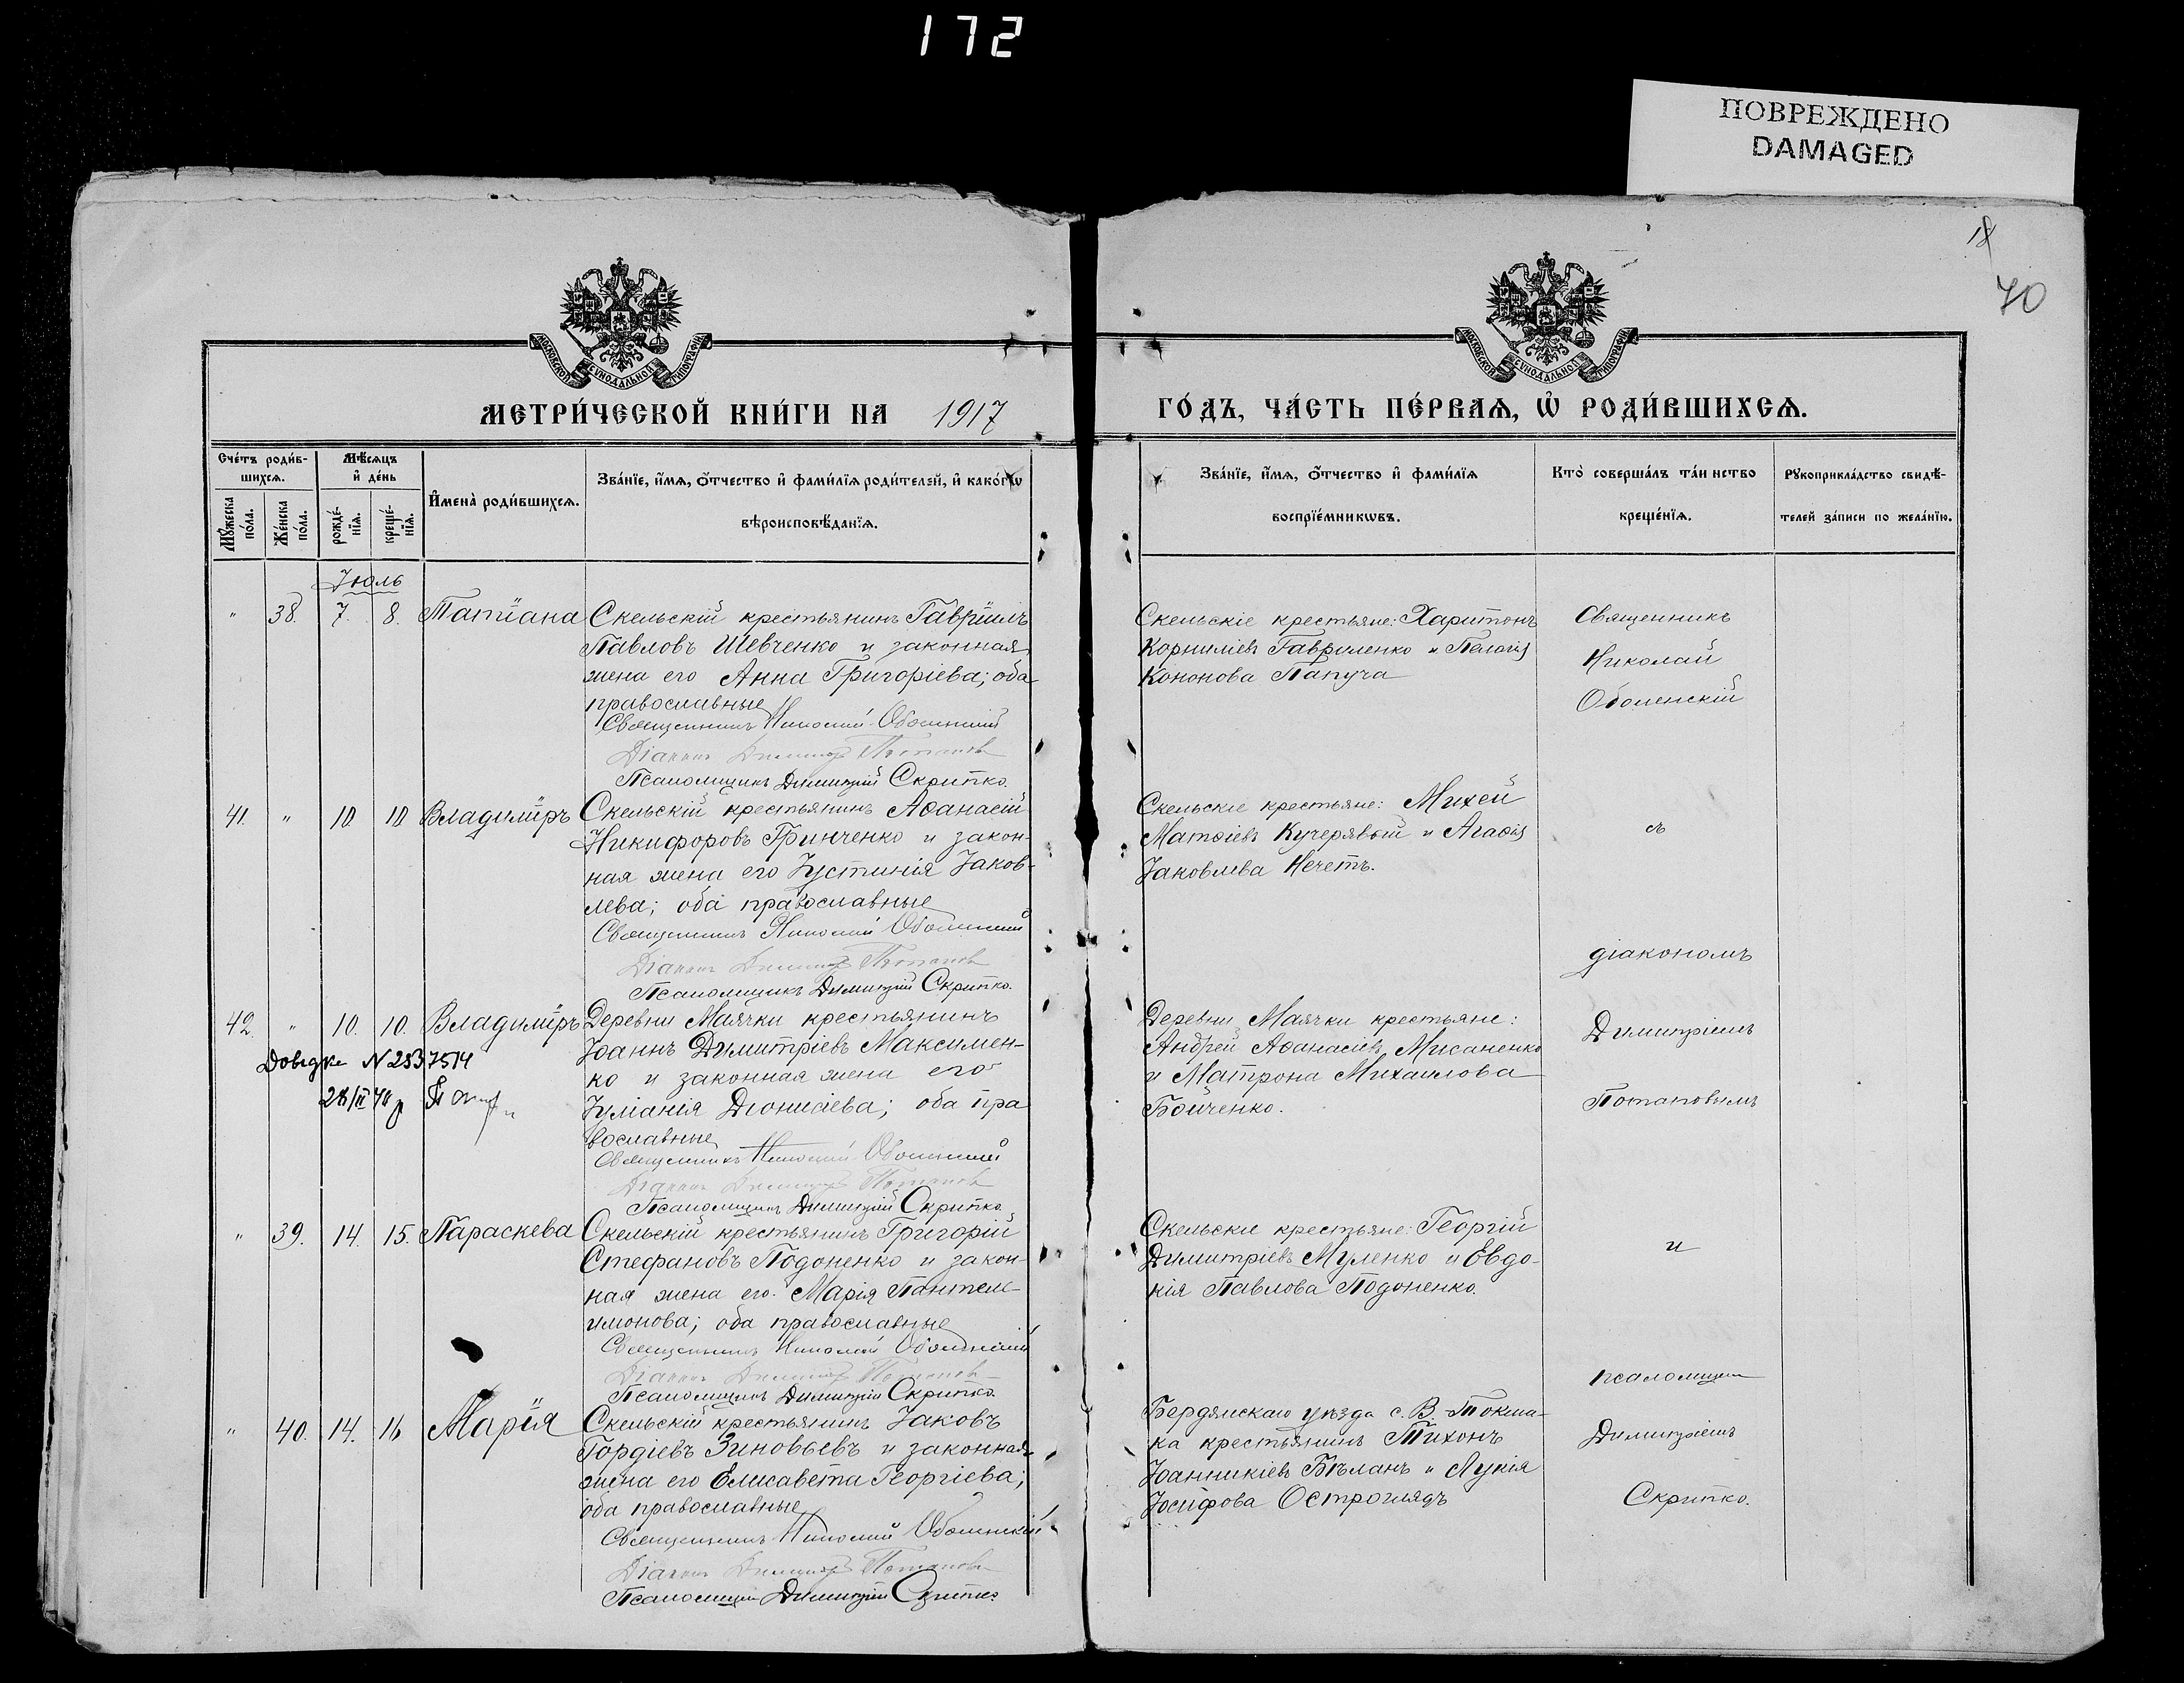 172
ПОВРЕЖДЕНО
DAMAGED
18
70
МОСКОВСКОЙ СѴНОДАЛЬНОЙ ТИПОГРАФІИ
МОСКОВСКОЙ СѴНОДАЛЬНОЙ ТИПОГРАФІИ
МЕТРИ́ЧЕСКОЙ КНИ́ГИ НА 1917
ГО́ДЪ, ЧА́СТЬ ПЕ́РВАѦ, Ѡ҆ РОДИ́ВШИХСѦ.
Сче́тъ роди́в-
шихсѧ.
Мꙋ́жеска по́ла.
Же́нска по́ла.
Мѣ́сѧцъ
и҆ де́нь
рожде́-
нїѧ.
креще́-
нїѧ.
И҆мена̀ роди́вшихсѧ.
Зва́нїе, и҆́мѧ, ѻ҆́тчество и҆ фами́лїѧ роди́телей, и҆ како́гѡ
вѣроисповѣ́данїѧ.
Зва́нїе, и҆́мѧ, ѻ҆́тчество и҆ фами́лїѧ
воспрїе́мникѡвъ.
Кто̀ соверша́лъ та́инство
креще́нїѧ.
Рꙋкоприкла́дство свидѣ́-
телей за́писи по жела́нїю.
Іюль
" 38. 7. 8. Татіана
Скельскій крестьянинъ Гавріилъ
Павловъ Шевченко и законная
жена его Анна Григоріева; оба
православные
Священникъ Николай Оболенскій
Діаконъ Димитрій Потаповъ
Псаломщикъ Димитрій Скрипко.
Скельскіе крестьяне: Харитонъ
Корниліевъ Гавриленко и Пелагія
Кононова Папуча
Священникъ
Николай
Оболенскій
41. " 10 10 Владиміръ
Скельскій крестьянинъ Аѳанасій
Никифоровъ Гринченко и закон-
ная жена его Іустинія Іаков-
лева; оба православные
Священникъ Николай Оболенскій
Діаконъ Димитрій Потаповъ
Псаломщикъ Димитрій Скрипко.
Скельскіе крестьяне: Михей
Матѳіевъ Кучерявый и Агаѳія
Іаковлева Нечетъ.
съ
діакономъ
42. " 10. 10. Владиміръ
Довідка N 2337514
28/II
Деревни Маячки крестьянинъ
Іоаннъ Димитріевъ Максимен-
ко и законная жена его
Іуліанія Діонисіева; оба пра
вославные
Священникъ Николай Оболенскій
Діаконъ Димитрій Потаповъ
Псаломщикъ Димитрій Скрипко.
Деревни Маячки крестьяне:
Андрей Аѳанасіевъ Мисаненко
и Матрона Михаилова
Бойченко.
Димитріемъ
Потаповымъ
" 39. 14. 15. Параскева
Скельскій крестьянинъ Григорій
Стефановъ Подоненко и закон-
ная жена его Марія Пантеле-
имонова; оба православные
Священникъ Николай Оболенскій
Діаконъ Димитрій Потаповъ
Псаломщикъ Димитрій Скрипко.
Скельскіе крестьяне: Георгій
Димитріевъ Муленко и Евдо-
кія Павлова Подоненко.
и
псаломщик
" 40. 14. 16 Марія
Скельскій крестьянинъ Іаковъ
Гордіевъ Зиновьевъ и законная
жена его Елисавета Георгіева;
оба православные
Священникъ Николай Оболенскій
Діаконъ Димитрій Потаповъ
Псаломщикъ Димитрій Скрипко
Бердянскаго уѣзда с. В.-Токма-
ка крестьянинъ Тихонъ
Іоанникіевъ Бѣланъ и Лукія
Іосифова Остроглядъ
Димитріемъ
Скрипко.